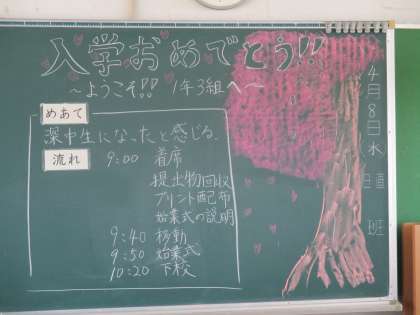 入学おめでとう!!
～ようこそ!! 1年3組へ～
4月8日水
めあて
藻中生になったと感じる。
流れ
9:00 着席
提出物回収
プリント配布
始業式の説明
9:40 移動
9:50 始業式
10:20 下校
班